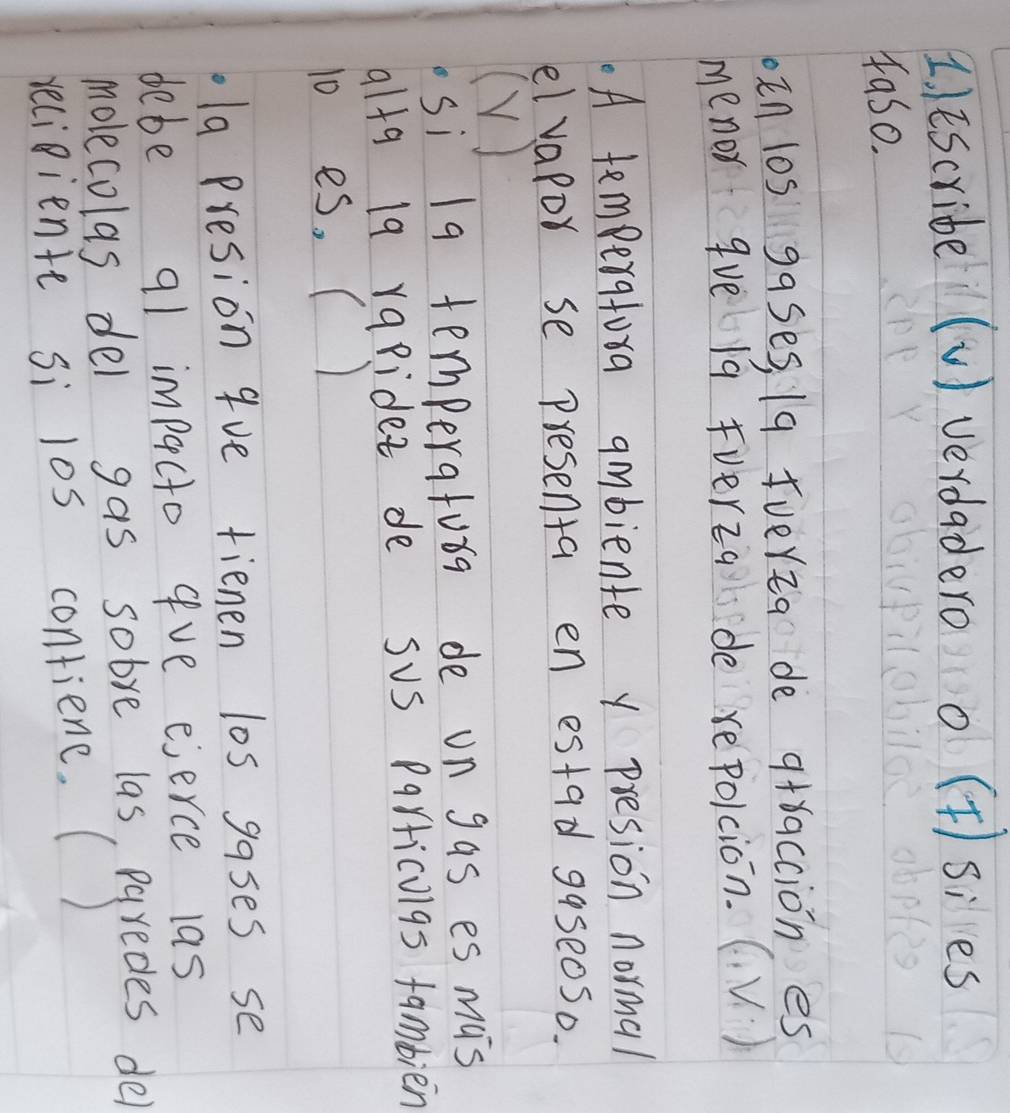 1.) Escribe (v) verdadero o (f) si es
faso.
• En los gases, la fuerza de atracción es
menor que la fuerza de repolción. (V)
• A temperatura ambiente y presión normal
el vapor se presenta en estad gaseoso.
(V)
• Si la temperatura de un gas es más
alta la rapidez de sus particulas también
lo es. ( )
• la presión que tienen los gases se
debe al impacto que ejerce las
moleculas del gas sobre las paredes del
recipiente si los contiene. ( )